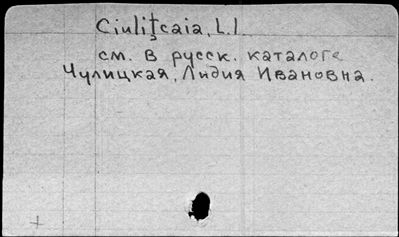 Ciuliţcaia, L.I.
см. в русск. каталоге
Чулицкая, Лидия Ивановна.